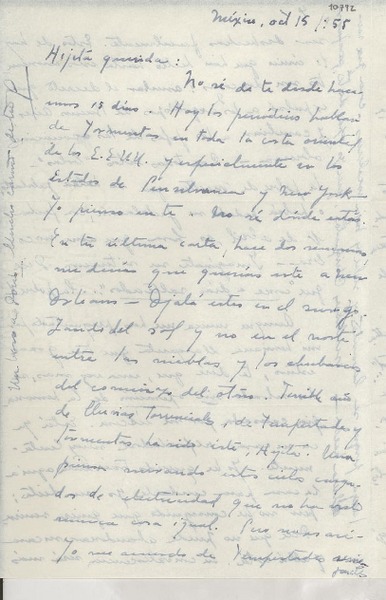 10792
México, oct 15/:55
Hijita querida:
No sé de ti desde hace
unos 15 días. Hoy los periódicos hablan
de tormentas en toda la costa oriental
de los E.E.U.U. y especialmente en los
Estados de Pensilvania y New York
Yo pienso en ti. No sé dónde estás.
En tu última carta, hace dos semanas
me decías que querías irte a New
Orleans — Ojalá estés en el sur go-
zando del sol y no en el norte
entre las nieblas y los chubascos
del comienzo del otoño. Terrible año
de lluvias torrenciales, de tempestades y
tormentas ha sido este, Hijita. Una
piensa mirando estos cielos carga-
dos de electricidad que no ha visto
nunca cosa igual. Pero
yo me acuerdo de tempestades